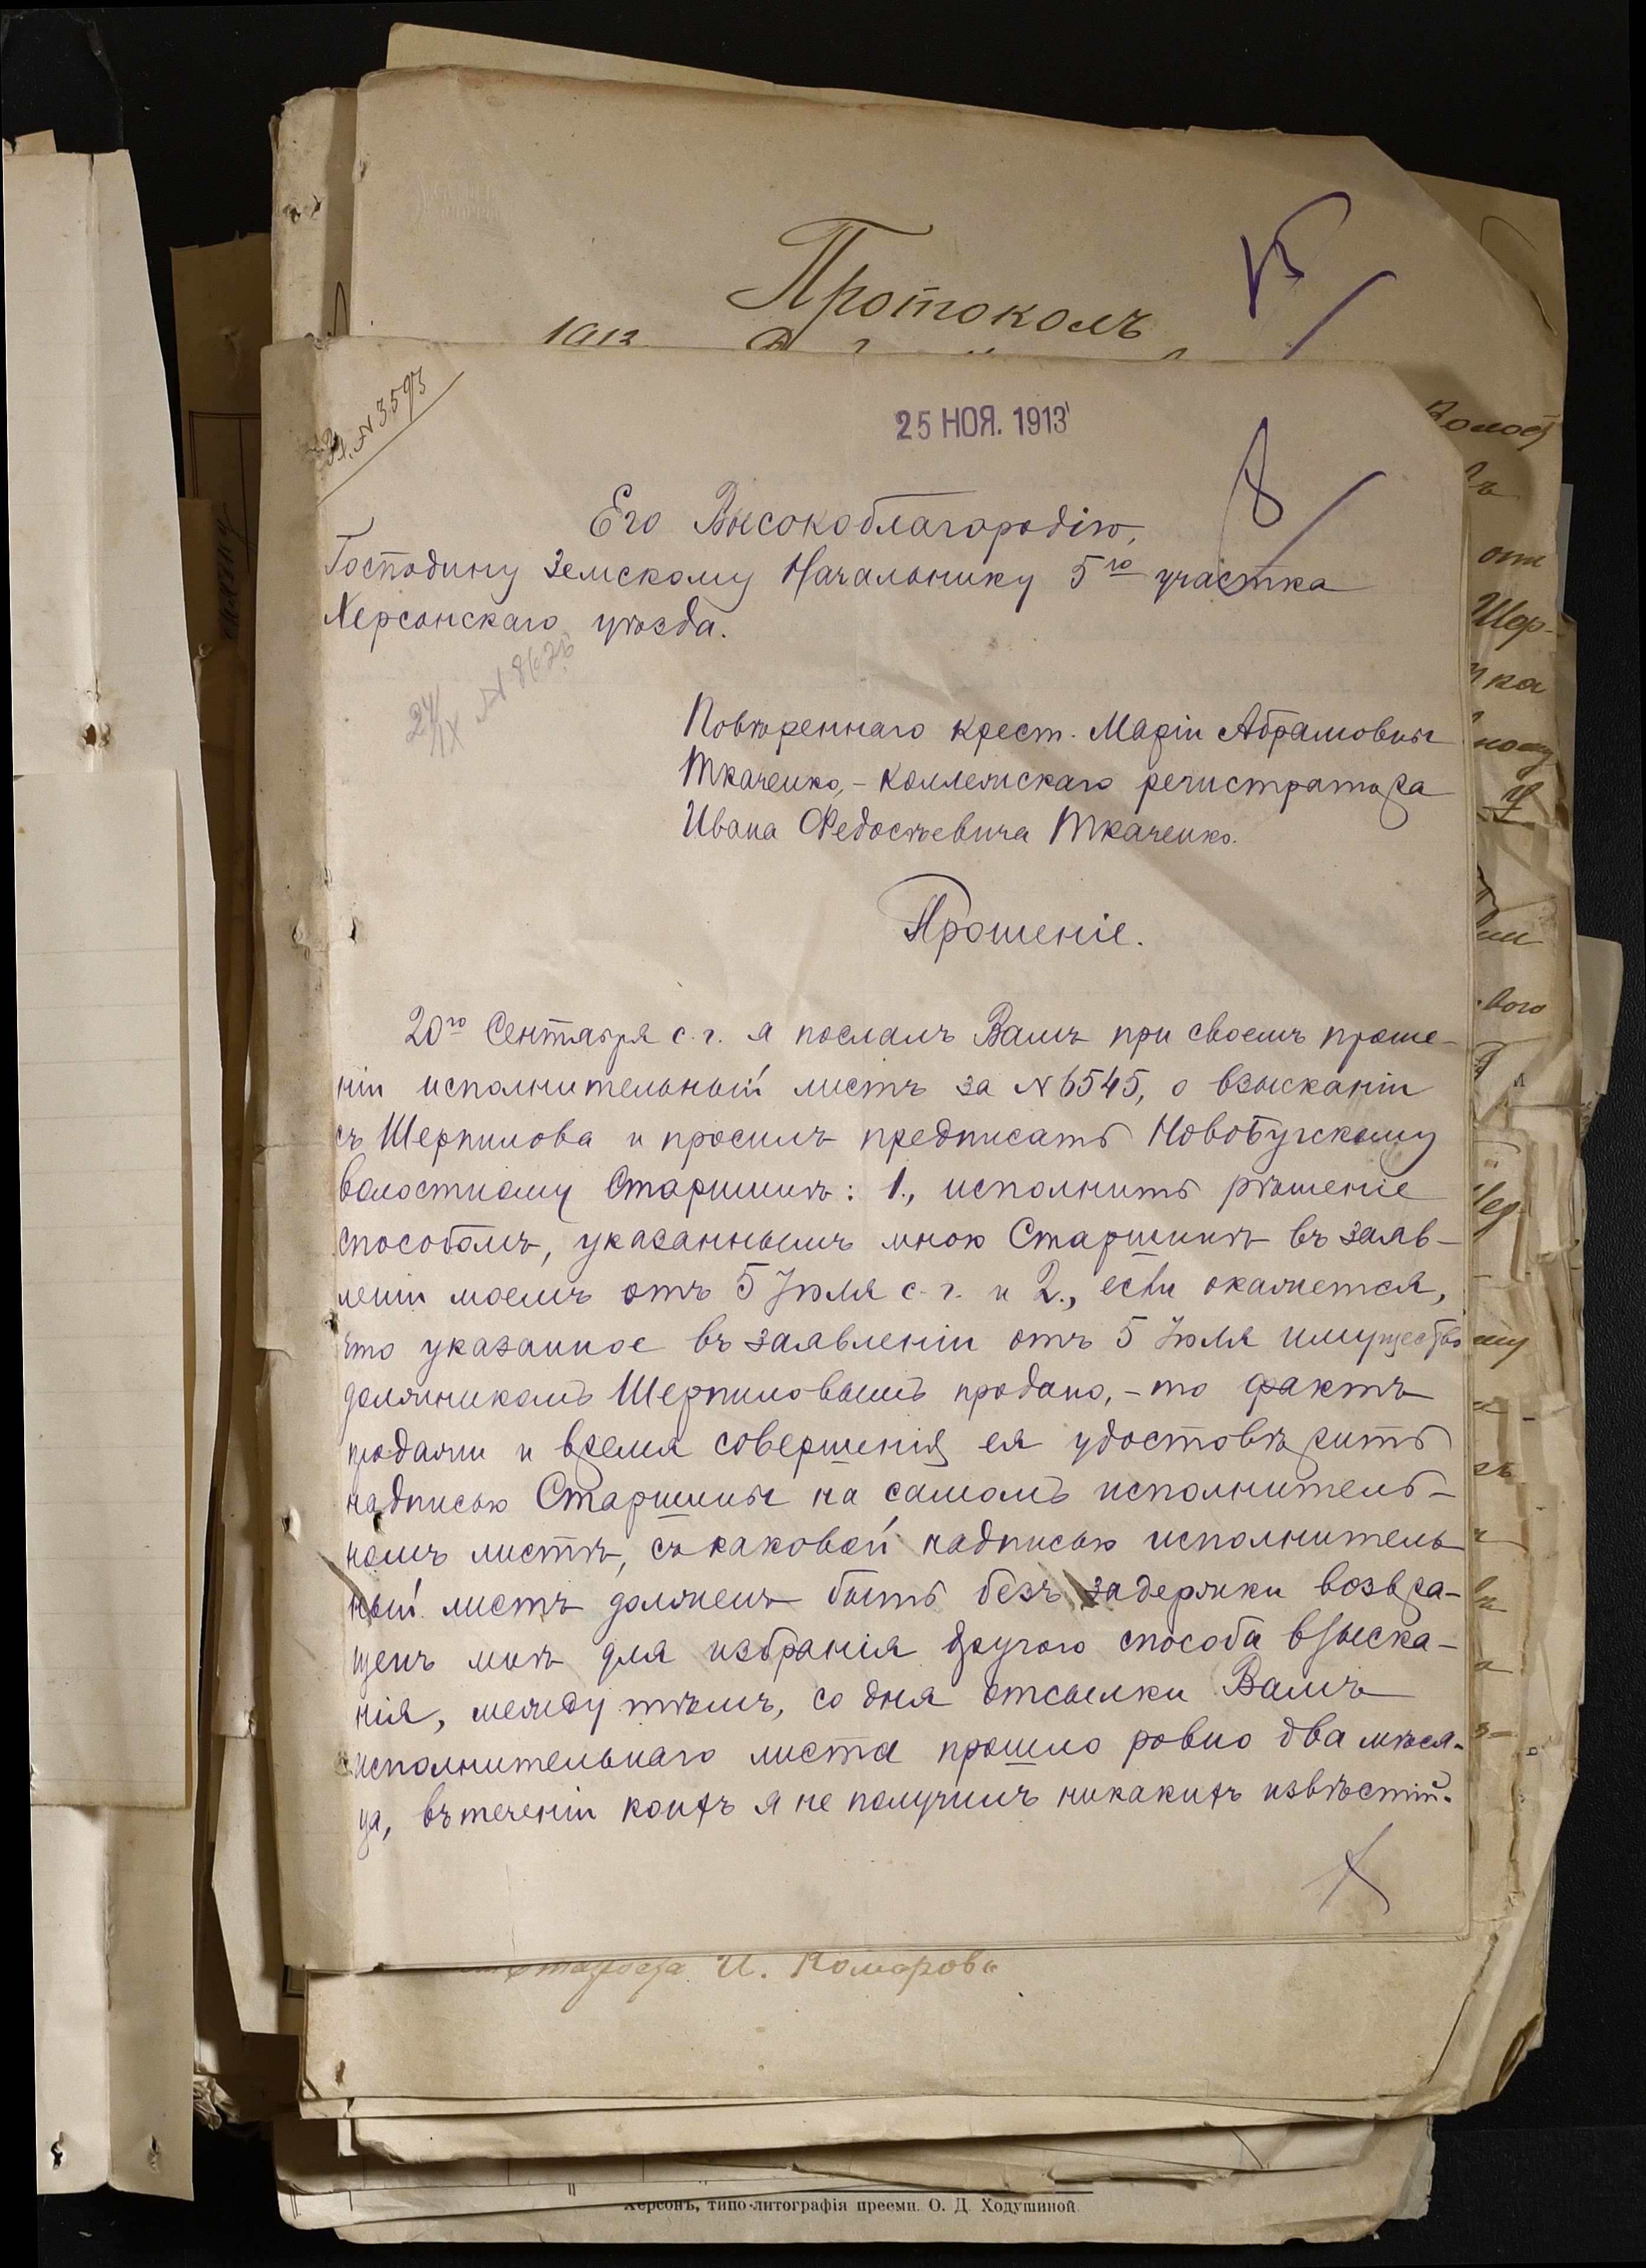 Протоколъ
1913
25 НОЯ. 1913
N 3593
8
Его Высокоблагородію,
Господину Земскому Начальнику 5го участка
Херсонскаго уѣзда.
24/IX N
Повѣреннаго крест. Маріи Абрамовны
Ткаченко, - Коллежскаго регистратора
Ивана Федосѣевича Ткаченко.
Прошеніе.
20го Сентября с. г. я послалъ Вамъ при своемъ проше-
ніи исполнительный листъ за N 6545, о взысканіи
съ Шерпилова и просилъ предписать Новобугскому
волостному Старшинѣ: 1., исполнить рѣшеніе
способомъ, указаннымъ мною Старшинѣ въ заяв-
леніи моемъ отъ 5 Іюля с. г. и 2., если окажется,
что указанное въ заявленіи отъ 5 Іюля имущество
должникомъ Шерпиловымъ продано, - то фактъ
продажи и время совершенія ея удостовѣрить
надписью Старшины на самомъ исполнитель-
номъ листѣ, съ каковой надписью исполнитель
ный листъ долженъ быть безъ задержки возвра-
щенъ мнѣ для избранія другого способа взыска-
нія, между тѣмъ, со дня отсылки Вамъ
исполнительнаго листа прошло ровно два мѣся-
ца, въ теченіи коихъ я не получилъ никакихъ извѣстій.
староста И. Комаровъ
Херсонъ, типо-литографія преемн. О. Д. Ходушиной.